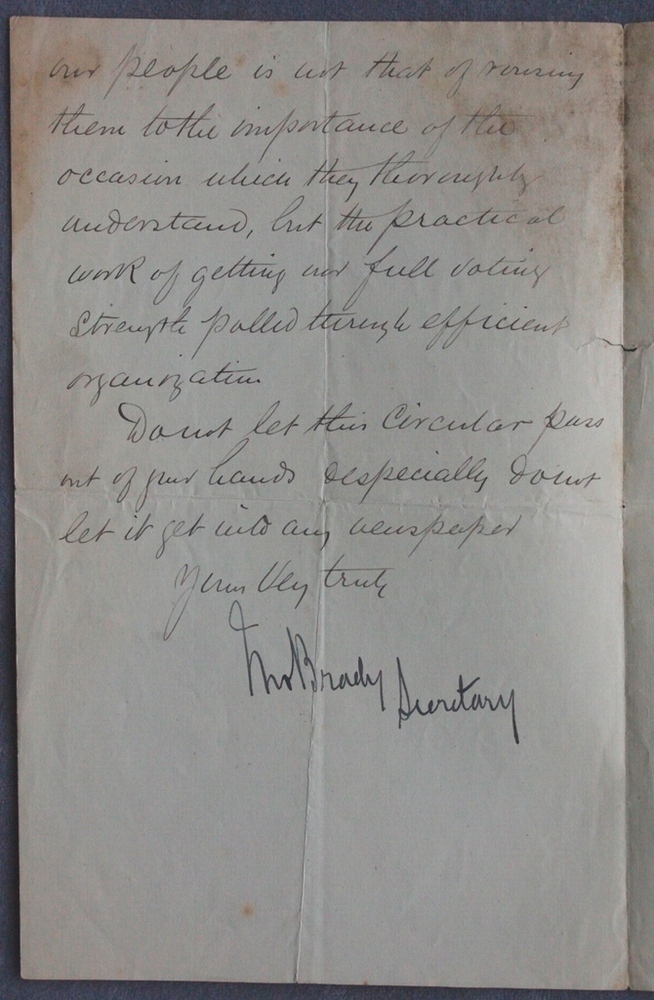 our people is not that of rousing
them to the importance of the
occasion which they thoroughly
understand, but the practical
work of getting our full voting
strength polled through efficient
organization
Do not let this Circular pass
out of your hands & especially do not
let it get into any newspaper
Yours Very truly
Thos Brady Secretary